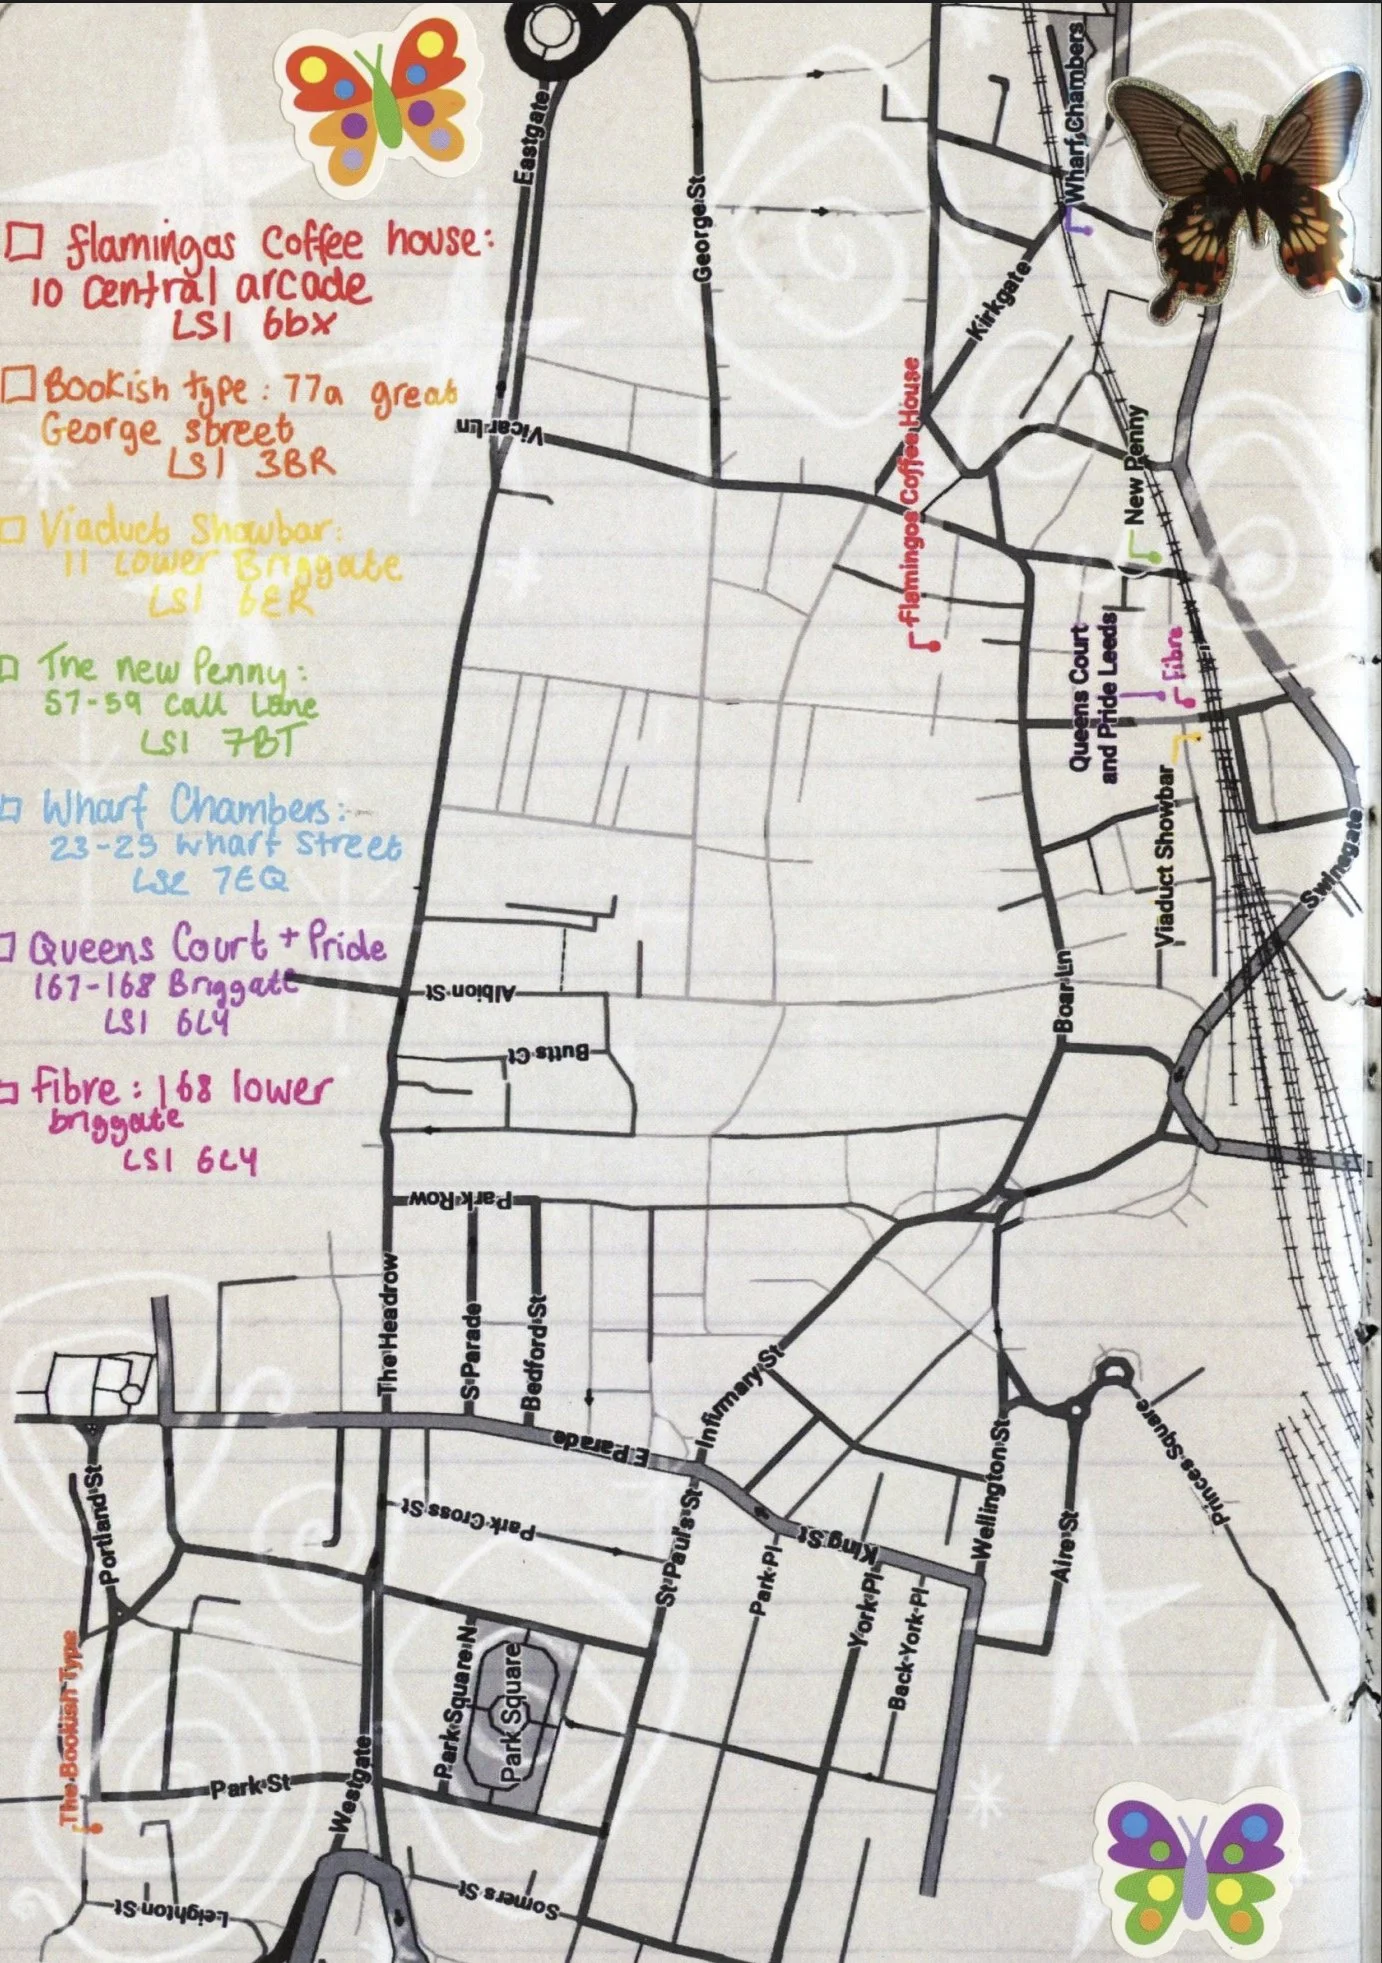 flamingos Coffee house:
10 Central arcade
LS1 6bx
Bookish type: 77a great
George street
LS1 3BR
Viaduct Showbar:
11 Lower Briggate
LS1 6ER
The new Penny:
57-59 Call Lane
LS1 7BT
Wharf Chambers:
23-25 Wharf Street
LS2 7EQ
Queens Court + Pride
167-168 Briggate
LS1 6LY
fibre: 168 lower
briggate
LS1 6LY
Eastgate
George St
Wharf Chambers
Kirkgate
Vicar Ln
Flamingos Coffee House
New Penny
Queens Court
and Pride Leeds
Fibre
Viaduct Showbar
Swinegate
Albion St
Boar Ln
Butts Ct
Park Row
The Headrow
S Parade
Bedford St
Infirmary St
E Parade
Portland St
Park Cross St
St Paul's St
King St
Wellington St
Princes Square
Aire St
Park Pl
York Pl
Back York Pl
The Bookish Type
Park Square N
Park Square
Park St
Westgate
Leighton St
Somers St